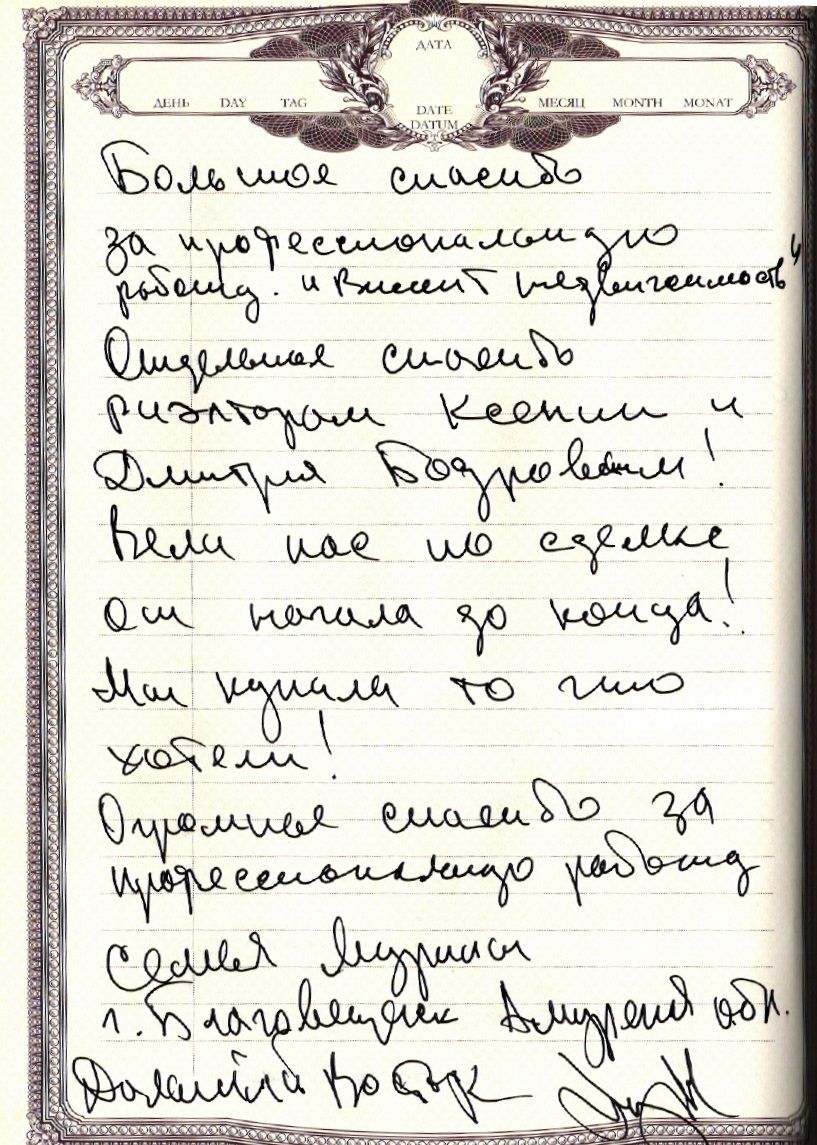 ДАТА
ДЕНЬ DAY TAG DATE МЕСЯЦ MONTH MONAT
DATUM
Большое спасибо
за профессиональную
работу. "Винсент Недвижимость"
Отдельное спасибо
риэлторам Ксении и
Дмитрия Бодровым!
Вели нас по сделке
от начала до конца!
Мы купили то что
хотели!
Огромное спасибо за
профессиональную работу
Семья
г. Благовещенск Амурская обл.
Дальний Восток